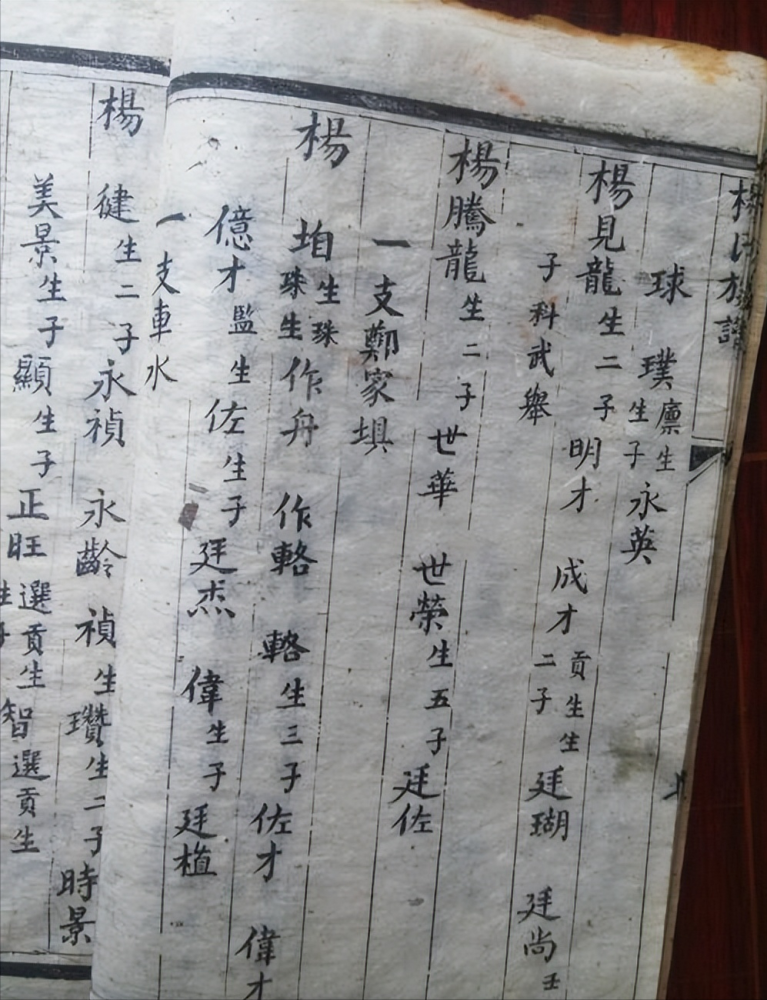 楊氏族譜
球 璞廩生生子永英
楊見龍生二子明才 成才貢生生二子廷瑚 廷尚壬
子科武舉
楊騰龍生二子世華 世榮生五子廷佐
一支鄭家埧
楊 珀生珠珠生作舟 作輅 輅生三子佐才 偉才
億才監生佐生子廷杰 偉生子廷植
一支車水
楊 健生二子永禎 永齡 禎生瓚生二子時景
美景生子顯生子正旺選貢生智選貢生